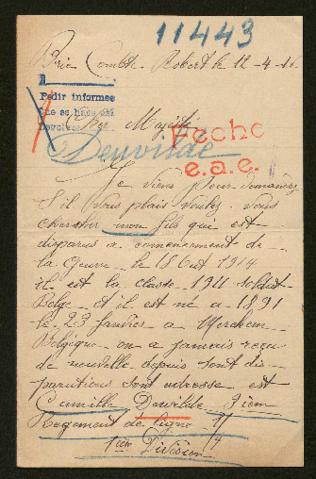 11443
Brie Comte Robert le 12-4-16
Pedir informes
que se hace en
Hecho
e.a.e.
Denvilde
Je viens vous demandez
S il vous plais voulez vous
chercher mon fils qui est
disparus a comencement de
la Geuvre le 18 Out 1914
il est la classe 1911 soldat
Belge et il est né a 1891
le 23 fanvier a Merchem
Belgique on a jamais reçu
de nouvelle depuis sont dis-
paruitions sont adresse est
Camille Denvilde 3iem
Regement de Ligne
1iere Division